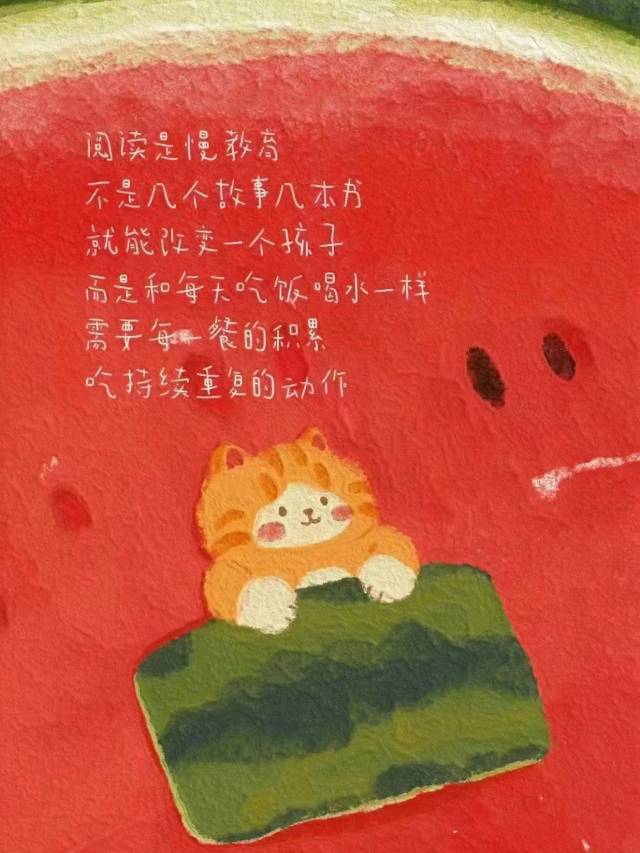 阅读是慢教育
不是几个故事几本书
就能改变一个孩子
而是和每天吃饭喝水一样
需要每一餐的积累
吃持续重复的动作